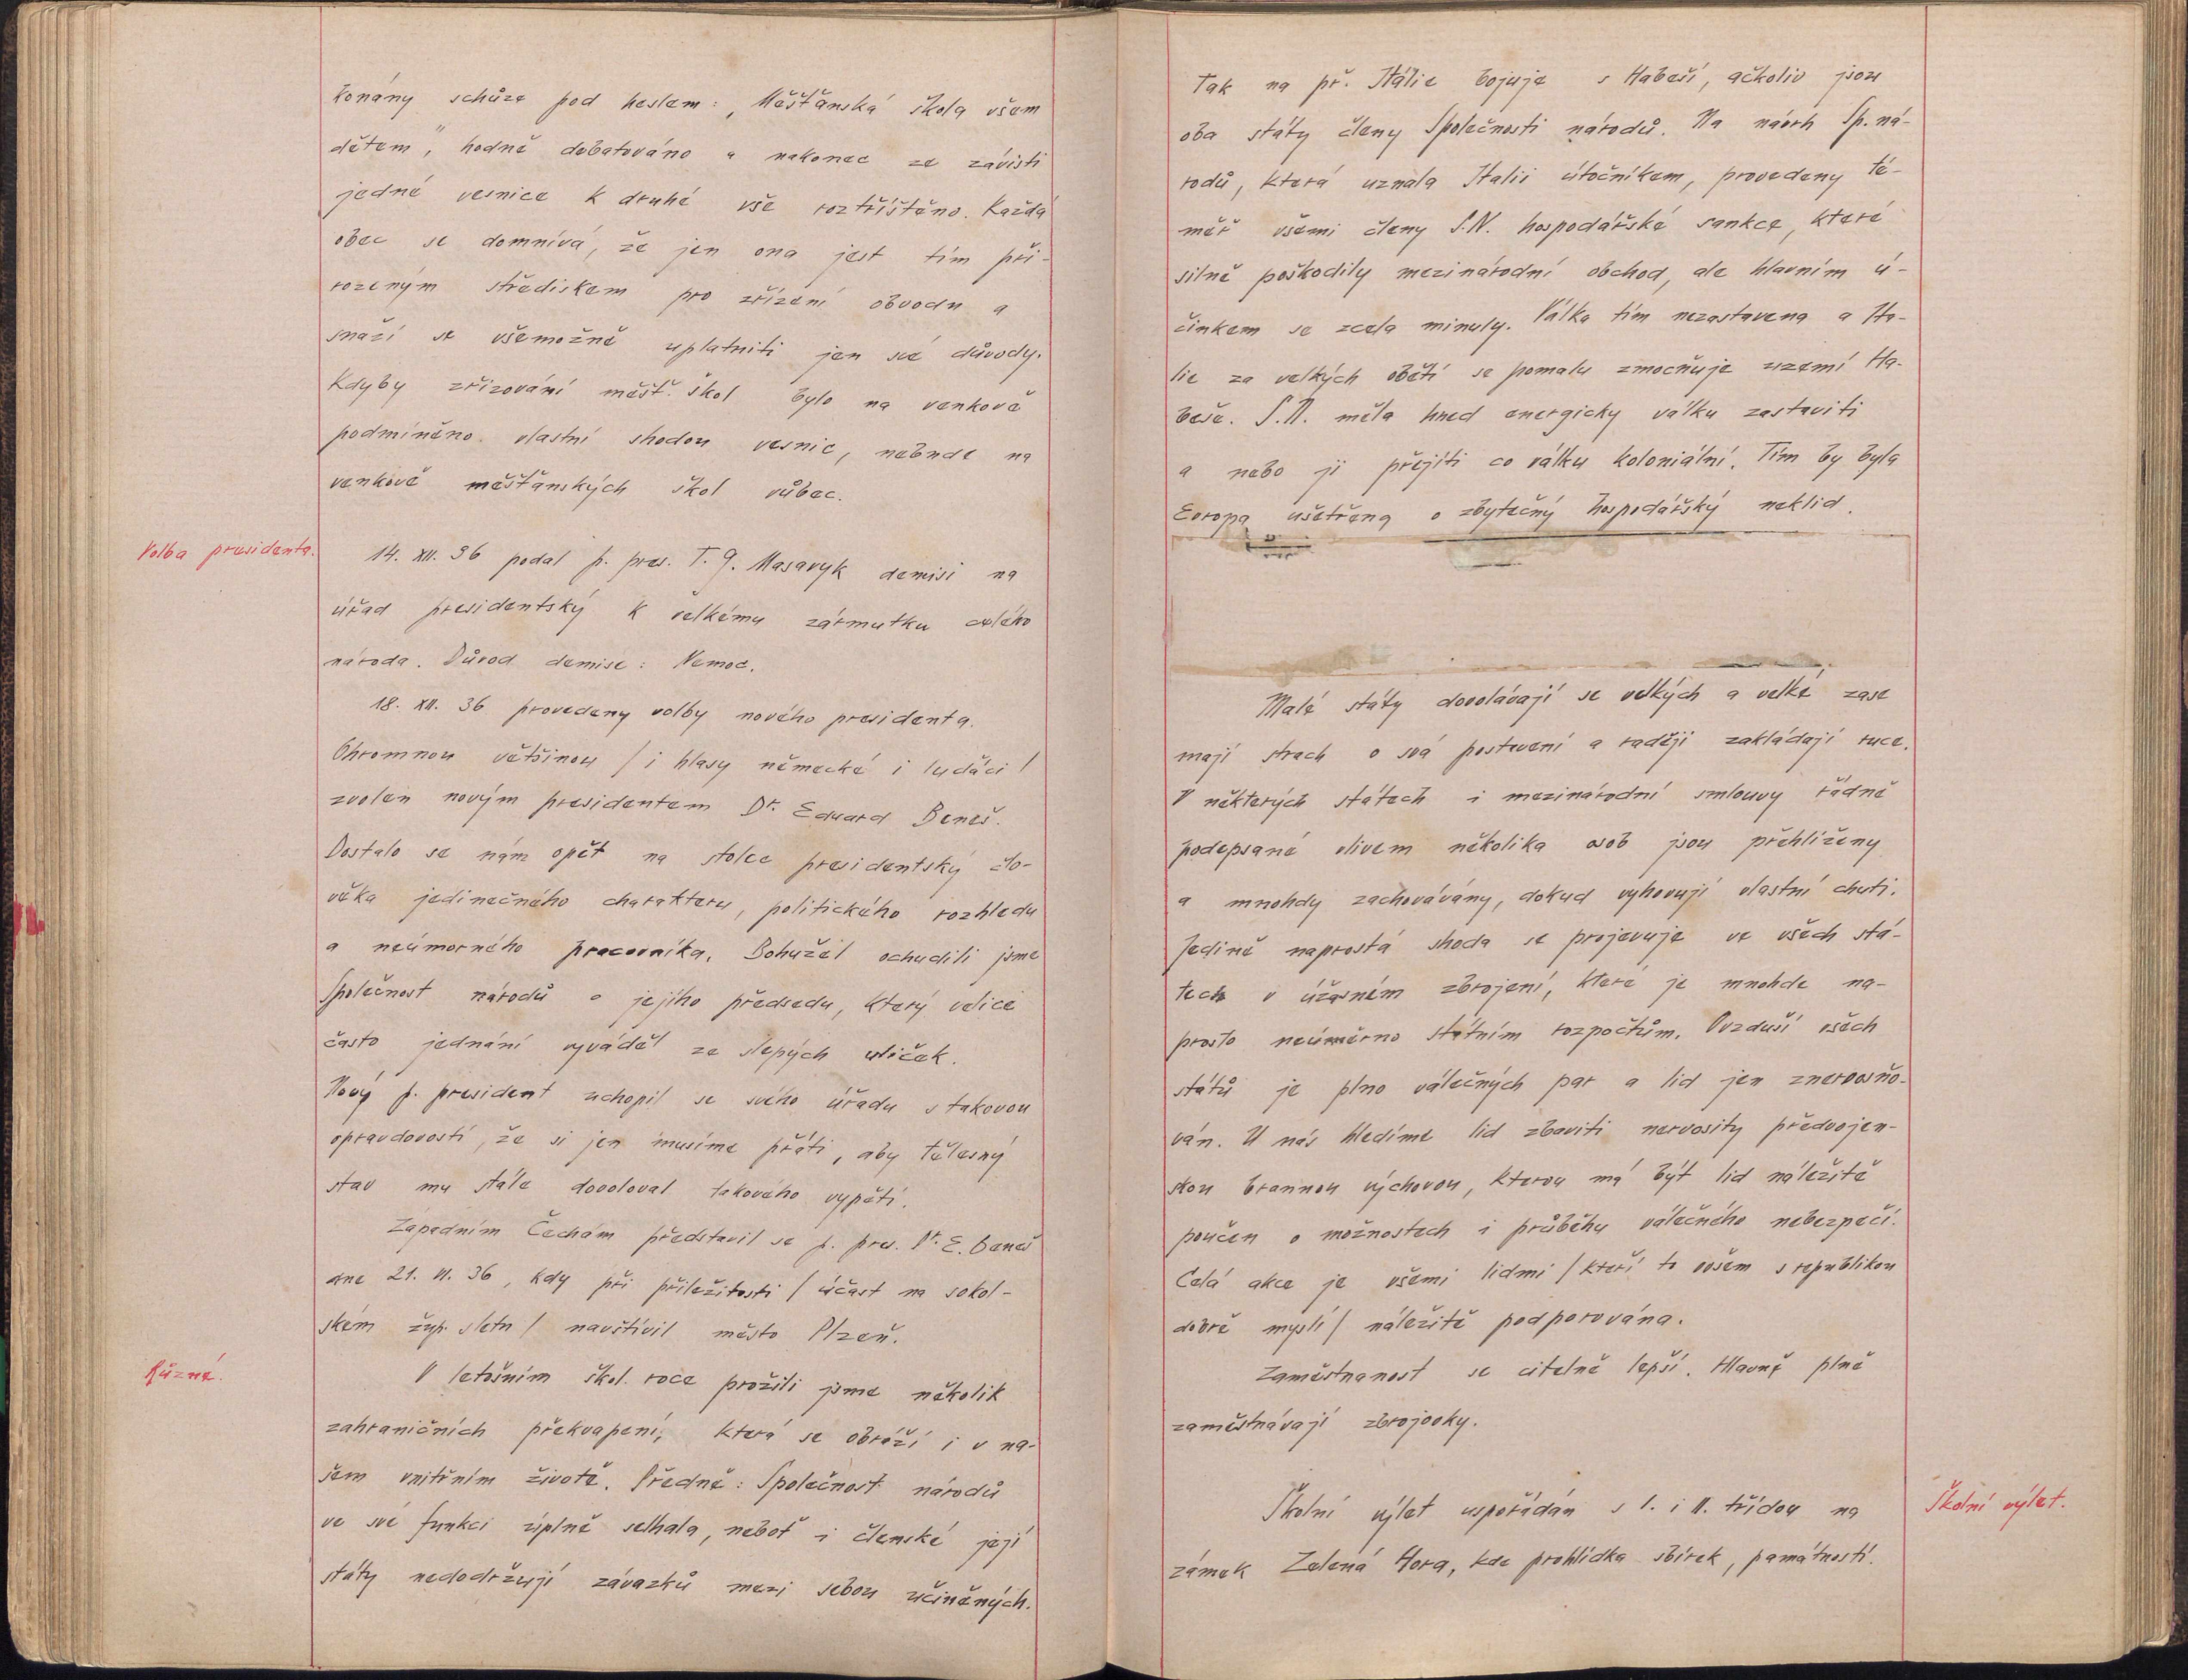 konány schůze pod heslem: „Měšťanská škola všem
dětem", hodně debatováno a nakonec ze závisti
jedné vesnice k druhé vše roztříštěno. Každá
obec se domnívá, že jen ona jest tím při-
rozeným střediskem pro zřízení obvodu a
snaží se všemožně uplatniti jen své důvody.
Kdyby zřizování měšť. škol bylo na venkově
podmíněno vlastní shodou vesnic, nebude na
venkově měšťanských škol vůbec.
Volba presidenta.
14. XII. 36 podal p. pres. T. G. Masaryk demisi na
úřad presidentský k velkému zármutku celého
národa. Důvod demise: Nemoc.
18. XII. 36 provedeny volby nového presidenta.
Ohromnou většinou / i hlasy německé i luďáci /
zvolen novým presidentem Dr. Eduard Beneš.
Dostalo se nám opět na stolec presidentský člo-
věka jedinečného charakteru, politického rozhledu
a neúmorného pracovníka. Bohužel ochudili jsme
Společnost národů o jejího předsedu, který velice
často jednání vyváděl ze slepých uliček.
Nový p. president uchopil se svého úřadu s takovou
opravdovostí, že si jen musíme přáti, aby tělesný
stav mu stále dovoloval takového vypětí.
Západním Čechám představil se p. pres. Dr. E. Beneš
dne 21. VI. 36, kdy při příležitosti / účast na sokol-
ském žup. sletu / navštívil město Plzeň.
Různé.
V letošním škol. roce prožili jsme několik
zahraničních překvapení, která se obráží i v na-
šem vnitřním životě. Předně: Společnost národů
ve své funkci úplně selhala, neboť i členské její
státy nedodržují závazků mezi sebou učiněných.
Tak na př. Itálie bojuje s Habeší, ačkoliv jsou
oba státy členy Společnosti národů. Na návrh Sp. ná-
rodů, která uznala Italii útočníkem, provedeny té-
měř všemi členy S.N. hospodářské sankce, které
silně poškodily mezinárodní obchod, ale hlavním ú-
činkem se zcela minuly. Válka tím nezastavena a Ita-
lie za velkých obětí se pomalu zmocňuje území Ha-
beše. S.N. měla hned energicky válku zastaviti
a nebo ji přejíti co válku koloniální. Tím by byla
Evropa ušetřena o zbytečný hospodářský neklid.
Malé státy dovolávají se velkých a velké zase
mají strach o svá postavení a raději zakládají ruce.
V některých státech i mezinárodní smlouvy řádně
podepsané vlivem několika osob jsou přehlíženy
a mnohdy zachovávány, dokud vyhovují vlastní chuti.
Jedině naprostá shoda se projevuje ve všech stá-
tech v úžasném zbrojení, které je mnohde na-
prosto neúměrno státním rozpočtům. Ovzduší všech
států je plno válečných par a lid jen znervosňo-
ván. U nás hledíme lid zbaviti nervosity předvojen-
skou brannou výchovou, kterou má být lid náležitě
poučen o možnostech i průběhu válečného nebezpečí.
Celá akce je všemi lidmi / kteří to ovšem s republikou
dobře myslí / náležitě podporována.
Zaměstnanost se citelně lepší. Hlavně plně
zaměstnávají zbrojovky.
Školní výlet uspořádán s I. i II. třídou na
Školní výlet.
zámek Zelená Hora, kde prohlídka sbírek, památností.